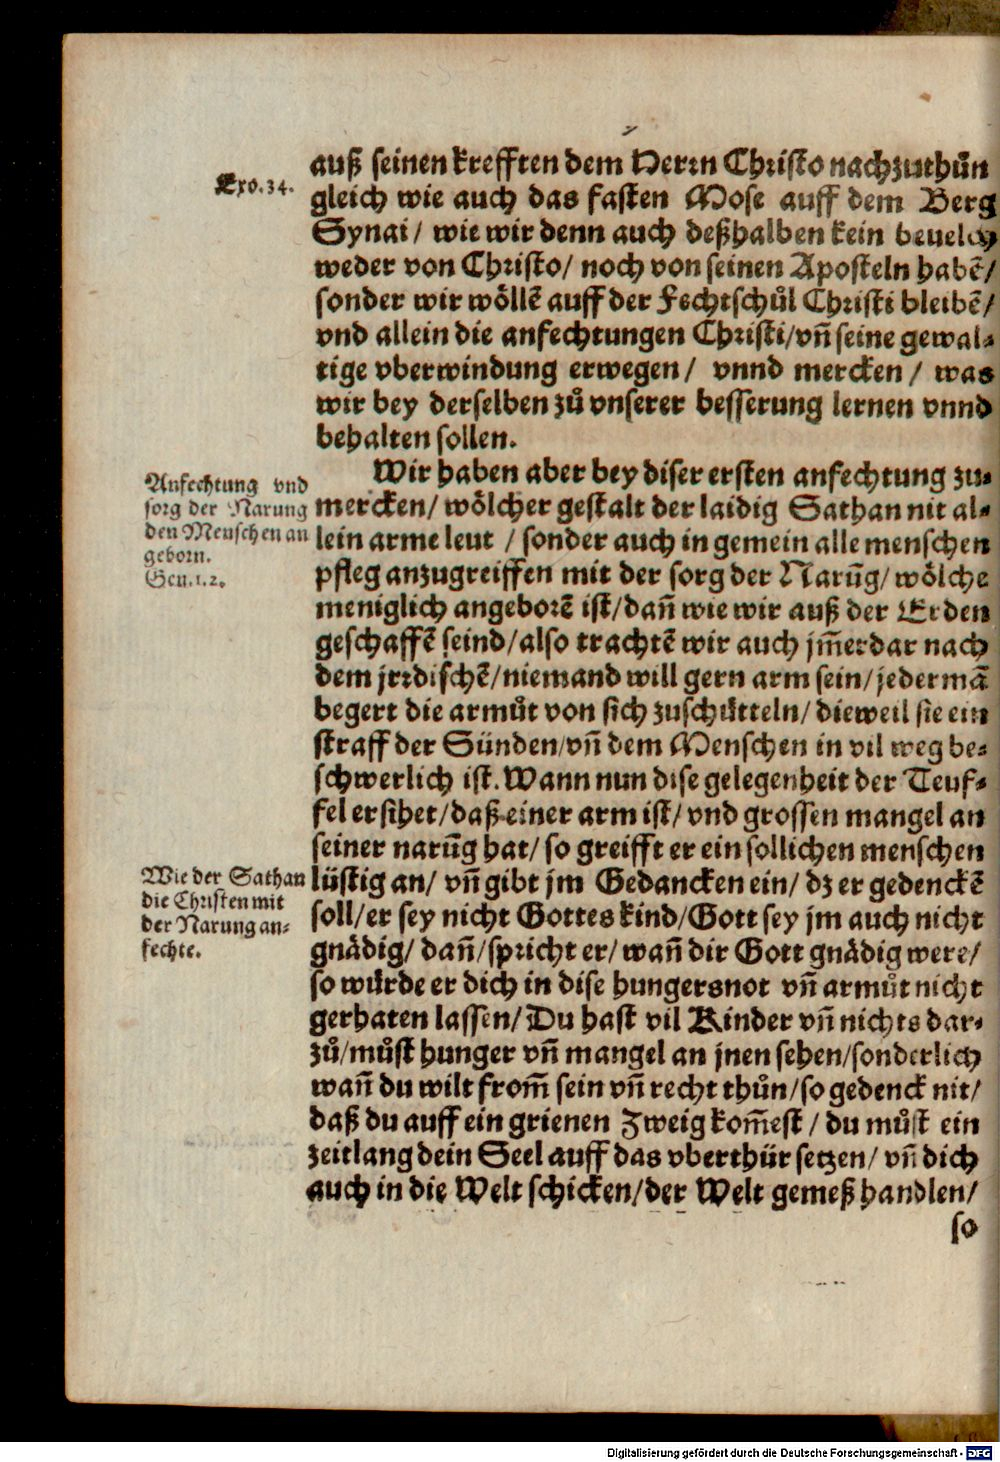 auß seinen krefften dem Herrn Christo nachzuthůn
Exo. 34.
gleich wie auch das fasten Mose auff dem Berg
Synai / wie wir denn auch deßhalben kein beuelch
weder von Christo / noch von seinen Aposteln habē /
sonder wir wöllē auff der Fechtschůl Christi bleibē /
vnd allein die anfechtungen Christi / vn̄ seine gewal-
tige vberwindung erwegen / vnnd mercken / was
wir bey derselben zů vnserer besserung lernen vnnd
behalten sollen.
Anfechtung vnd
sorg der Narung
den Menschen an
geborn.
Gen. 1. 2.
Wir haben aber bey diser ersten anfechtung zu-
mercken / wölcher gestalt der laidig Sathan nit al-
lein arme leut / sonder auch in gemein alle menschen
pfleg anzugreiffen mit der sorg der Narūg / wölche
meniglich angeborē ist / dan̄ wie wir auß der Erden
geschaffē seind / also trachtē wir auch jm̄erdar nach
dem jrrdischē / niemand will gern arm sein / jedermā
begert die armůt von sich zuschütteln / dieweil sie ein
straff der Sünden / vn̄ dem Menschen in vil weg be-
schwerlich ist. Wann nun dise gelegenheit der Teuf-
fel ersihet / daß einer arm ist / vnd grossen mangel an
seiner narūg hat / so greifft er ein sollichen menschen
Wie der Sathan
die Christen mit
der Narung an-
fechte.
lüstig an / vn̄ gibt jm Gedancken ein / dz er gedenckē
soll / er sey nicht Gottes kind / Gott sey jm auch nicht
gnädig / dan̄ / spricht er / wan̄ dir Gott gnädig were /
so würde er dich in dise hungersnot vn̄ armůt nicht
gerhaten lassen / Du hast vil Kinder vn̄ nichts dar-
zů / můst hunger vn̄ mangel an jnen sehen / sonderlich
wan̄ du wilt from̄ sein vn̄ recht thůn / so gedenck nit /
daß du auff ein grienen Zweig kom̄est / du můst ein
zeitlang dein Seel auff das vberthür setzen / vn̄ dich
auch in die Welt schicken / der Welt gemeß handlen /
so
Digitalisierung gefördert durch die Deutsche Forschungsgemeinschaft - DFG